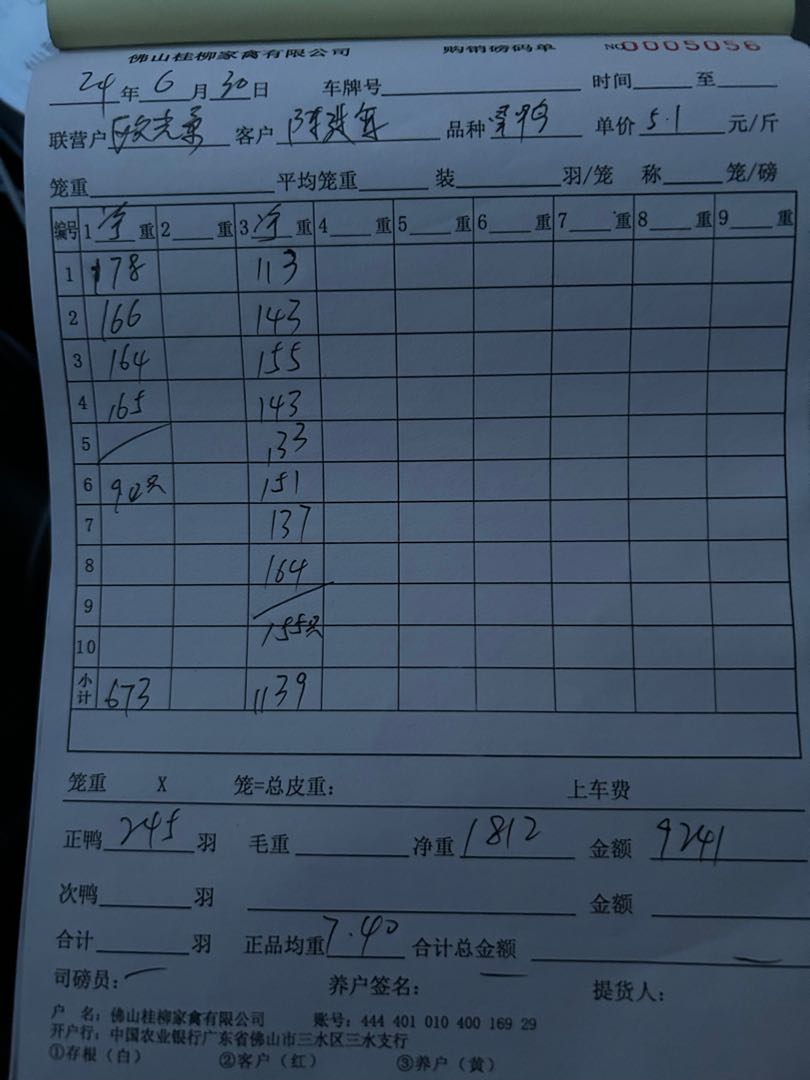 佛山桂柳家禽有限公司 购销磅码单 NO 0005056
24 年 6 月 30 日 车牌号 时间 至
联营户 客户 品种 单价 5.1 元/斤
笼重 平均笼重 装 羽/笼 称 笼/磅
编号 1 净 重 2 重 3 净 重 4 重 5 重 6 重 7 重 8 重 9 重
1 178 113
2 166 143
3 164 155
4 165 143
5 133
6 90只 151
7 137
8 164
9
10 155只
小计 673 1139
笼重 X 笼=总皮重: 上车费
正鸭 245 羽 毛重 净重 1812 金额 9241
次鸭 羽 金额
合计 羽 正品均重 7.40 合计总金额
司磅员: 养户签名: 提货人:
户 名: 佛山桂柳家禽有限公司 账号: 444 401 010 400 169 29
开户行: 中国农业银行广东省佛山市三水区三水支行
①存根(白) ②客户(红) ③养户(黄)